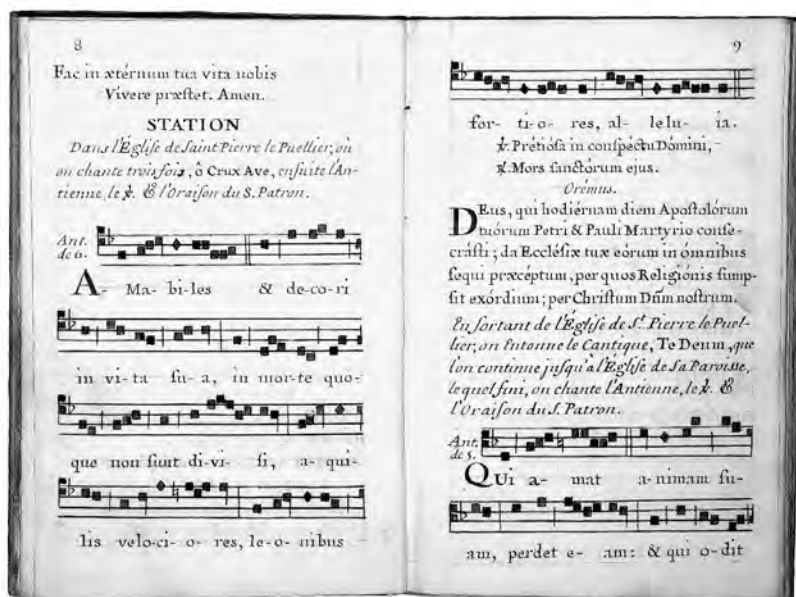 8
Fac in ætérnum tua vita nobis
Vivere præstet. Amen.
STATION
Dans l'Église de Saint Pierre le Puellier, où
on chante trois fois, ô Crux Ave, ensuite l'An-
tienne, le ℣. & l'Oraison du S. Patron.
Ant.
de 6.
A- Ma- bi-les & de-co-ri
in vi-ta su-a, in mor-te quo-
que non sunt di-vi- si, a-qui-
lis velo-ci-o-res, le-o-nibus
9
for-ti-o-res, al-lelu-ia.
℣. Prétiósa in conspéctu Dómini,
℟. Mors sanctórum ejus.
Orémus.
DEus, qui hodiérnam diem Apostolórum
tuórum Petri & Pauli Martyrio conse-
crásti; da Ecclésiæ tuæ eórum in ómnibus
sequi præcéptum, per quos Religiónis sump-
sit exórdium; per Christum Dñm nostrum.
En sortant de l'Église de St. Pierre le Puel-
lier, on Entonne le Cantique, Te Deum, que
l'on continue jusqu'à l'Église de Sa Paroisse,
lequel fini, on chante l'Antienne, le ℣. &
l'Oraison du S. Patron.
Ant.
de 5.
QUi a- mat a-nimam su-
am, perdet e- am: & qui o-dit